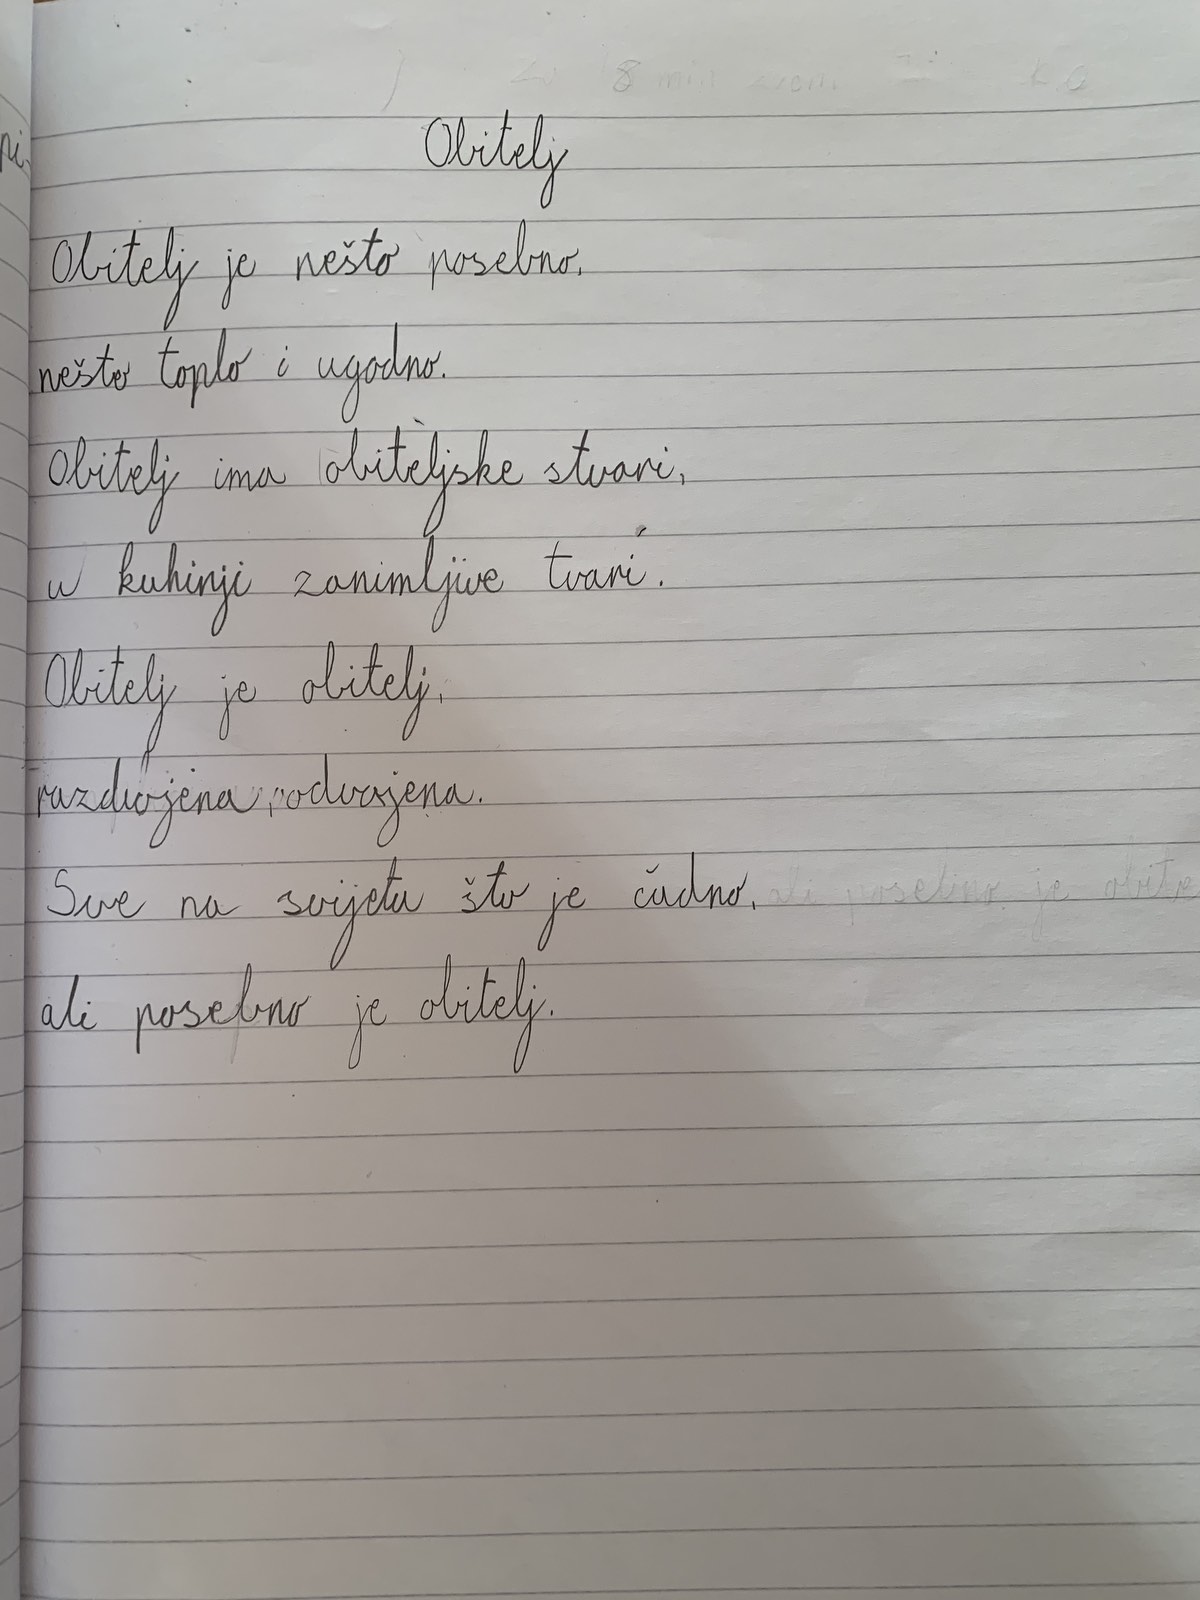 Obitelj
Obitelj je nešto posebno,
nešto toplo i ugodno.
Obitelj ima obiteljske stvari,
u kuhinji zanimljive tvari.
Obitelj je obitelj,
razdvojena, odvojena.
Sve na svijetu što je čudno, ali posebno je obite
ali posebno je obitelj.